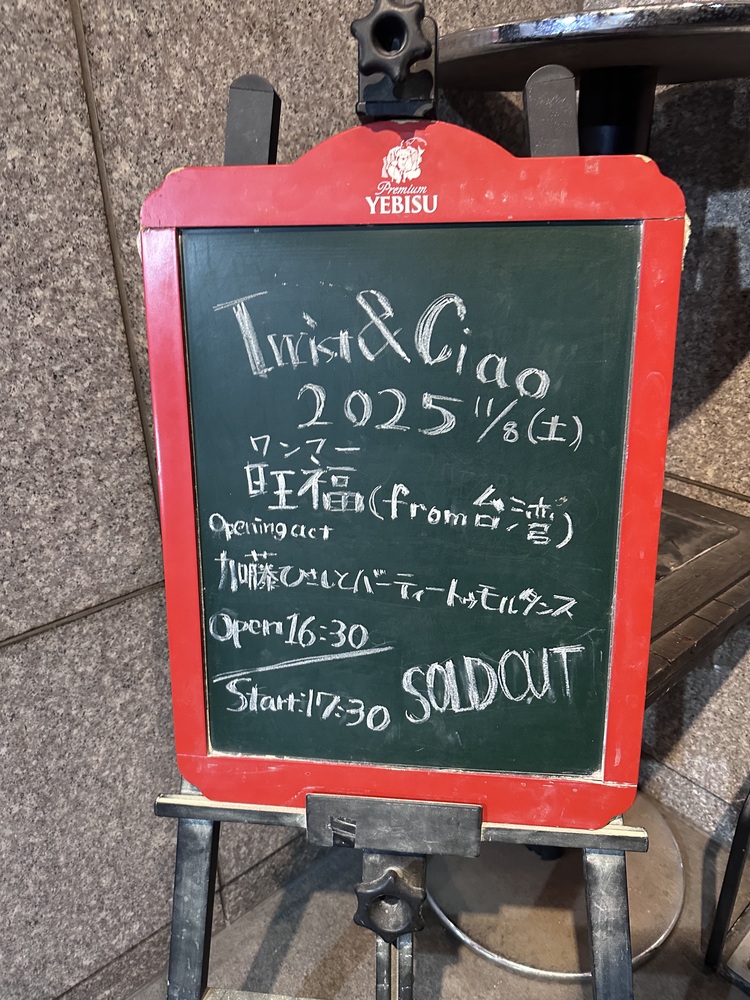 Premium
YEBISU
Twist & Ciao
2025 11/8 (土)
ワンフー
旺福 (from 台湾)
Opening act
加藤ひさしとパーティートゥモルタンス
Open 16:30
Start 17:30 SOLD OUT